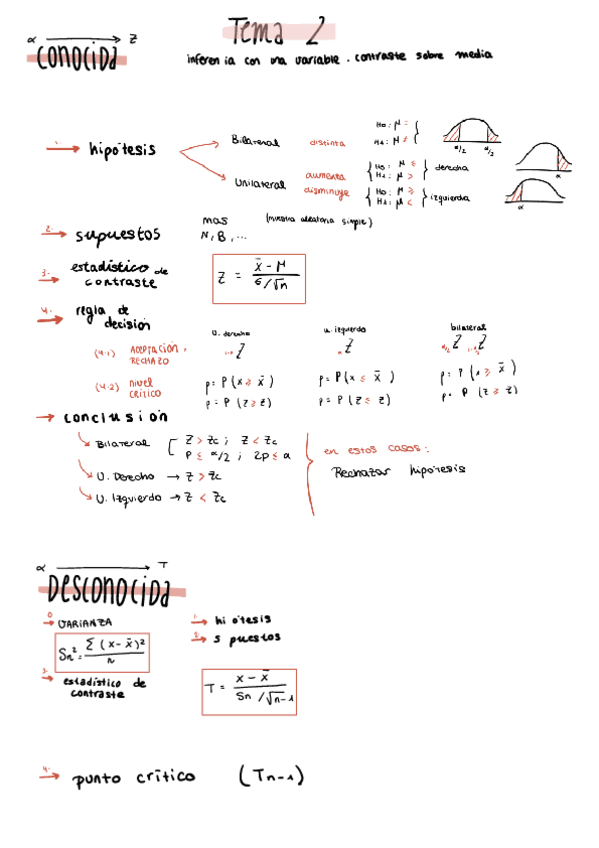 α → Z
CONOCIDA
Tema 2
inferencia con una variable . contraste sobre media
1. → hipótesis
Bilateral distinta H0 : μ = H1 : μ ≠ α/2 α/2
Unilateral aumenta H0 : μ ≤ H1 : μ > derecha α
disminuye H0 : μ ≥ H1 : μ < izquierda α
2. → supuestos mas (muestra aleatoria simple)
N, B, ...
3. → estadístico de contraste Z = x̄ - μ / σ/√n
4. → regla de decisión
U. derecho u. izquierdo bilateral
(4.1) ACEPTACIÓN, RECHAZO 1-α Z α Z α/2 Z 1-α/2 Z
(4.2) nivel crítico p = P (x ≥ x̄) p = P (x ≤ x̄) p = P (x ≥ x̄)
p = P (z ≥ z) p = P (z ≤ z) p = P (z ≥ z)
→ conclusión
Bilateral [ Z > Zc ; Z < Zc
P ≤ α/2 ; 2p ≤ α
U. Derecho → Z > Zc
U. Izquierdo → Z < Zc
en estos casos:
Rechazar hipótesis
α → T
DESCONOCIDA
0 → VARIANZA
Sn² = Σ (x - x̄)² / n
1. → hi ótesis
2. → s puestos
3. → estadístico de contraste
T = x - x̄ / Sn / √n-1
4. → punto crítico (Tn-1)